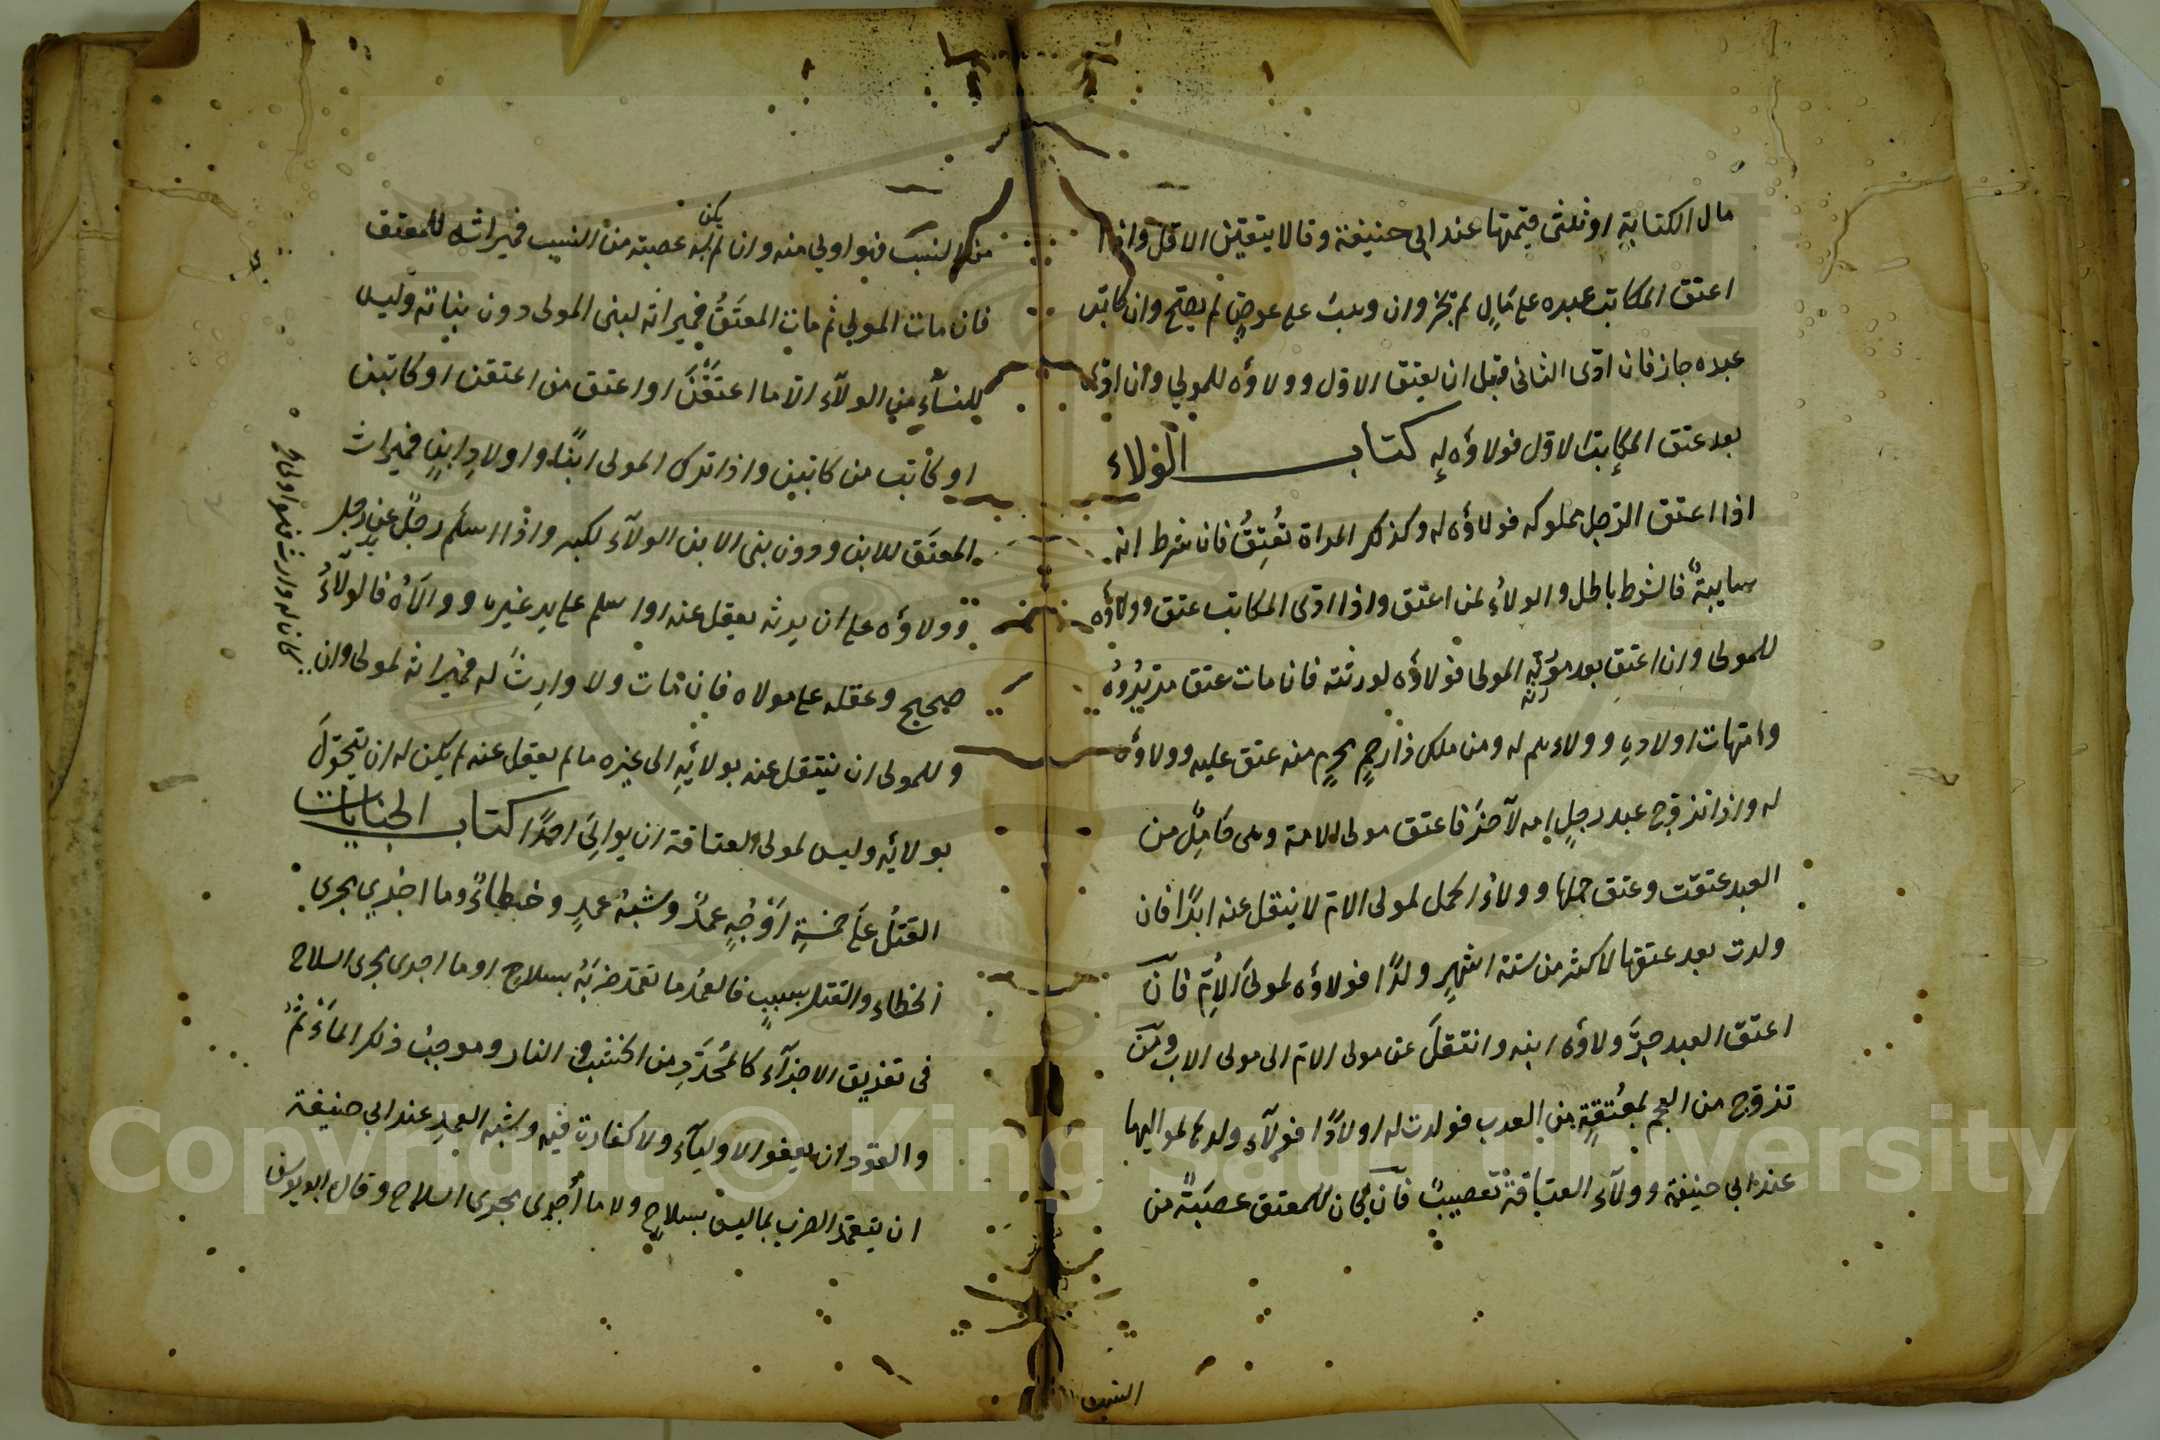 مال الكتابةِ او ثلثى قيمتها عند ابى حنيفة وقالا يتقين الاقل واذا
اعتق المكاتب عبده على مَالٍ لم تجز وان وهب على عوضٍ لم يصح وان كاتب
عبده جاز فان ادّى الثانى قبل ان يعتق الاوّل وولاؤه للمولى وان ادّى
بعد عتق المكاتب الاوّل فولاؤه له كتاب الولاء
اذا اعتق الرّجل مملوكه فولاؤه له وكذلك المراة تُعتِقُ فان شرط انه
سايبةٌ فالشرط باطل والولاءُ لمن اعتق واذا ادّى المكاتب عتق وولاؤه
للمولى وان اعتق بعد موته المولى فولاؤه لورثته فان مات عتق مدبّروُهُ
وامّهات اولادهِ وولاءهم له ومن ملك ذا رحمٍ محرمٍ منه عتق عليه وولاؤه
له واذا تزوّج عبد رجلٍ امه لآخرَ فاعتق مولى الامة وهى حَامِلٌ من
العبد عتقت وعتق حملها وولاءُ الحمل لمولى الامّ لا ينتقل عنه ابدًا فان
ولدت بعد عتقها لاكثر من ستة اشهرٍ ولدًا فولاؤه لمولىَ الاُمِّ فانَ
اعتق العبد جرَّ ولاؤه ابنه وانتقلَ عن مولى الامّ الى مولى الاب ومَن
تزوّج من العجم بمُعتقةٍ من العرب فولدت له اولادًا فولآء ولدها لمواليها
عند ابى حنيفة وولآء العتاقة تعصيبٌ فان كان للمعتق عصبَةٌ من
النسب
من النسب فهو اولى منه وان لم يكن له عصبة من النسب فميراثه للمعتق
فان مات المولى ثم مات المعتَقُ فميراثه لبنى المولى دون بناته وليس
للنسآءِ من الولآء الّا ما اعتَقْنَ او اعتق من اعتقن او كاتبن
او كاتب من كاتبن واذا ترك المولى ابنًا واولادِ ابنٍ فميراث
المعتَق للابن وودن بنى الابن الولآء لكبر واذا اسلم رجلٌ على يد رجل
وولاؤه على ان يرثه يعقل عنه او اسلم على يد غيره ووالآهُ فالولآءُ
صحيح وعقله على مولاه فان مَات ولا وارِثَ له فميراثه لمولى وان
كان له وارث فهو اولى
وللمولى ان ينتقل عنه بولائهِ الى غيره ما لم يعقل عنه لم يكن له ان يتحوّلَ
بولائه وليس لمولى العتاقة ان يوالىَ احدًا كتاب الجنايات
القتلُ علَى خمسَةِ اَوْجُهٍ عمدٌ وشبهُ عمدٍ وخطاءٌ وما اجري مجرى
الخطاء والقتل بسببٍ فالعمدُ ما تعمّد ضربَهُ بسلاحٍ او ما اجرى مجرى السلاح
فى تفريق الاجزآء كالمُحَدَّدِ من الخشب والنار وموجبُ ذلك المأثمُ
والقود ان يعفو الاوليآء ولا كفارت فيه وشبه العمدِ عند ابى حنيفة
ان يتعمّد الضرب بما ليس بسلاحٍ ولا ما اُجرى مجرى السلاح وقال ابو يوسف